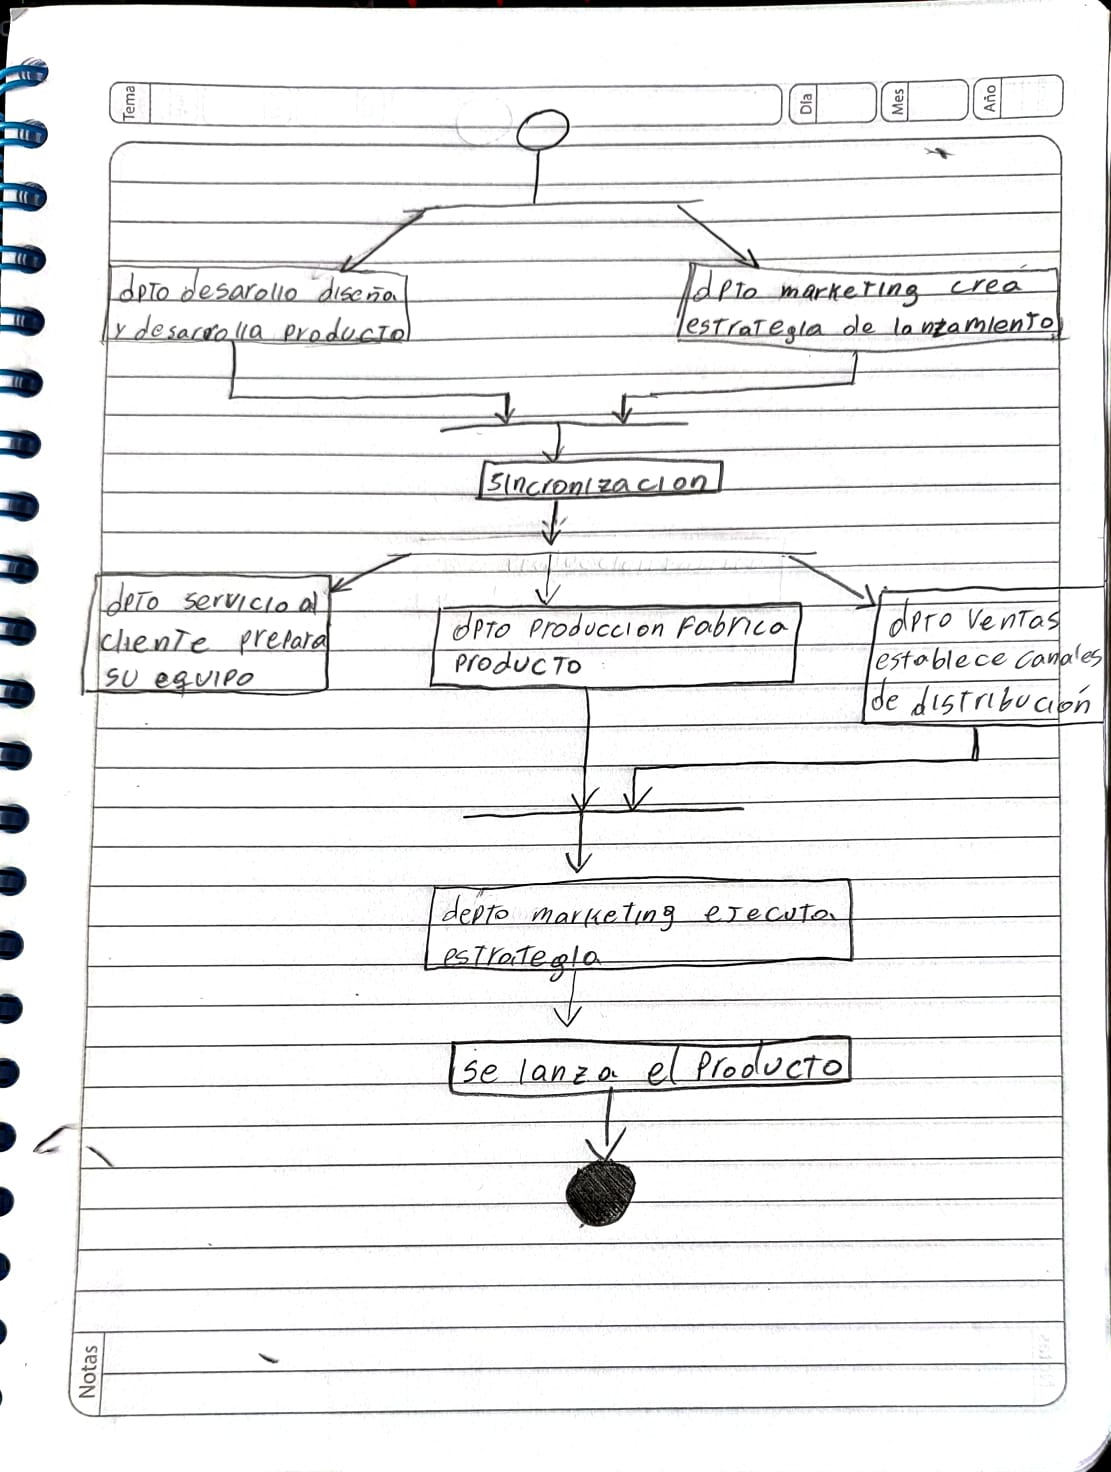 Tema
Día
Mes
Año
dpto desarollo diseña
y desarrolla producto
dpto marketing crea
estrategia de lanzamiento
sincronizacion
dpto servicio al
cliente prepara
su equipo
dpto produccion fabrica
producto
dpto ventas
establece canales
de distribución
depto marketing ejecuta
estrategia
se lanza el producto
Notas